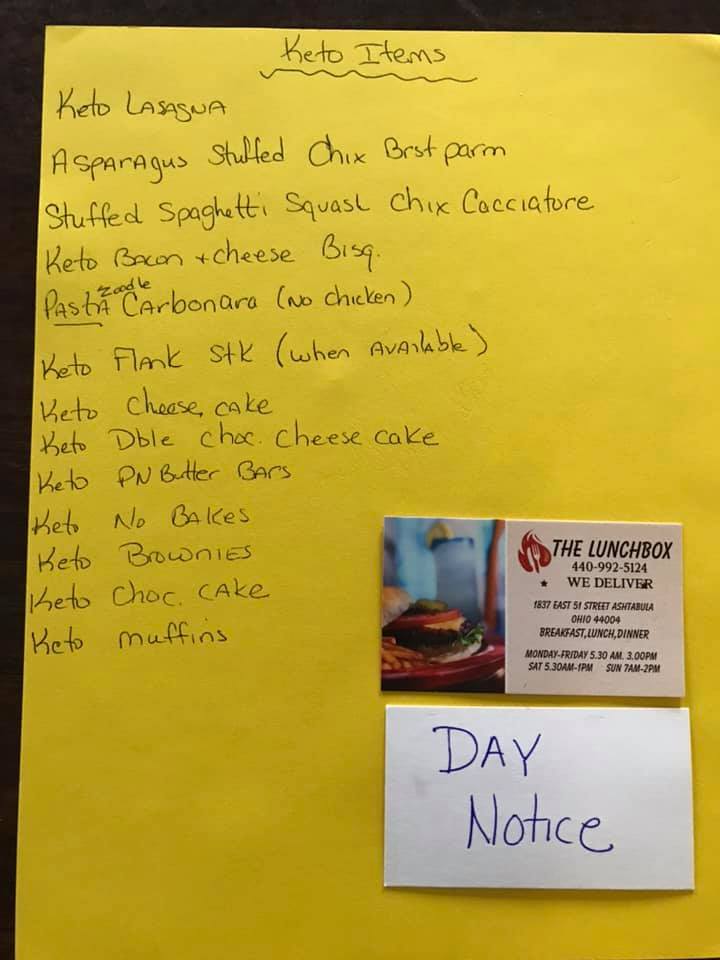 Keto Items
Keto LASAGNA
ASPARAgus Stuffed Chix Brst parm
Stuffed Spaghetti Squash Chix Cacciatore
Keto Bacon + cheese Bisq.
zoodle
PAStA CArbonara (No chicken)
Keto Flank Stk (when AVAilAble)
Keto Cheese, cake
Keto Dble choc. Cheese cake
Keto PN Butter BArs
Keto No BAkes
Keto BrowNIES
Keto Choc. CAke
Keto muffins
THE LUNCHBOX
440-992-5124
★ WE DELIVER
1837 EAST 51 STREET ASHTABULA
OHIO 44004
BREAKFAST,LUNCH,DINNER
MONDAY-FRIDAY 5.30 AM. 3.00PM
SAT 5.30AM-1PM SUN 7AM-2PM
DAY
Notice